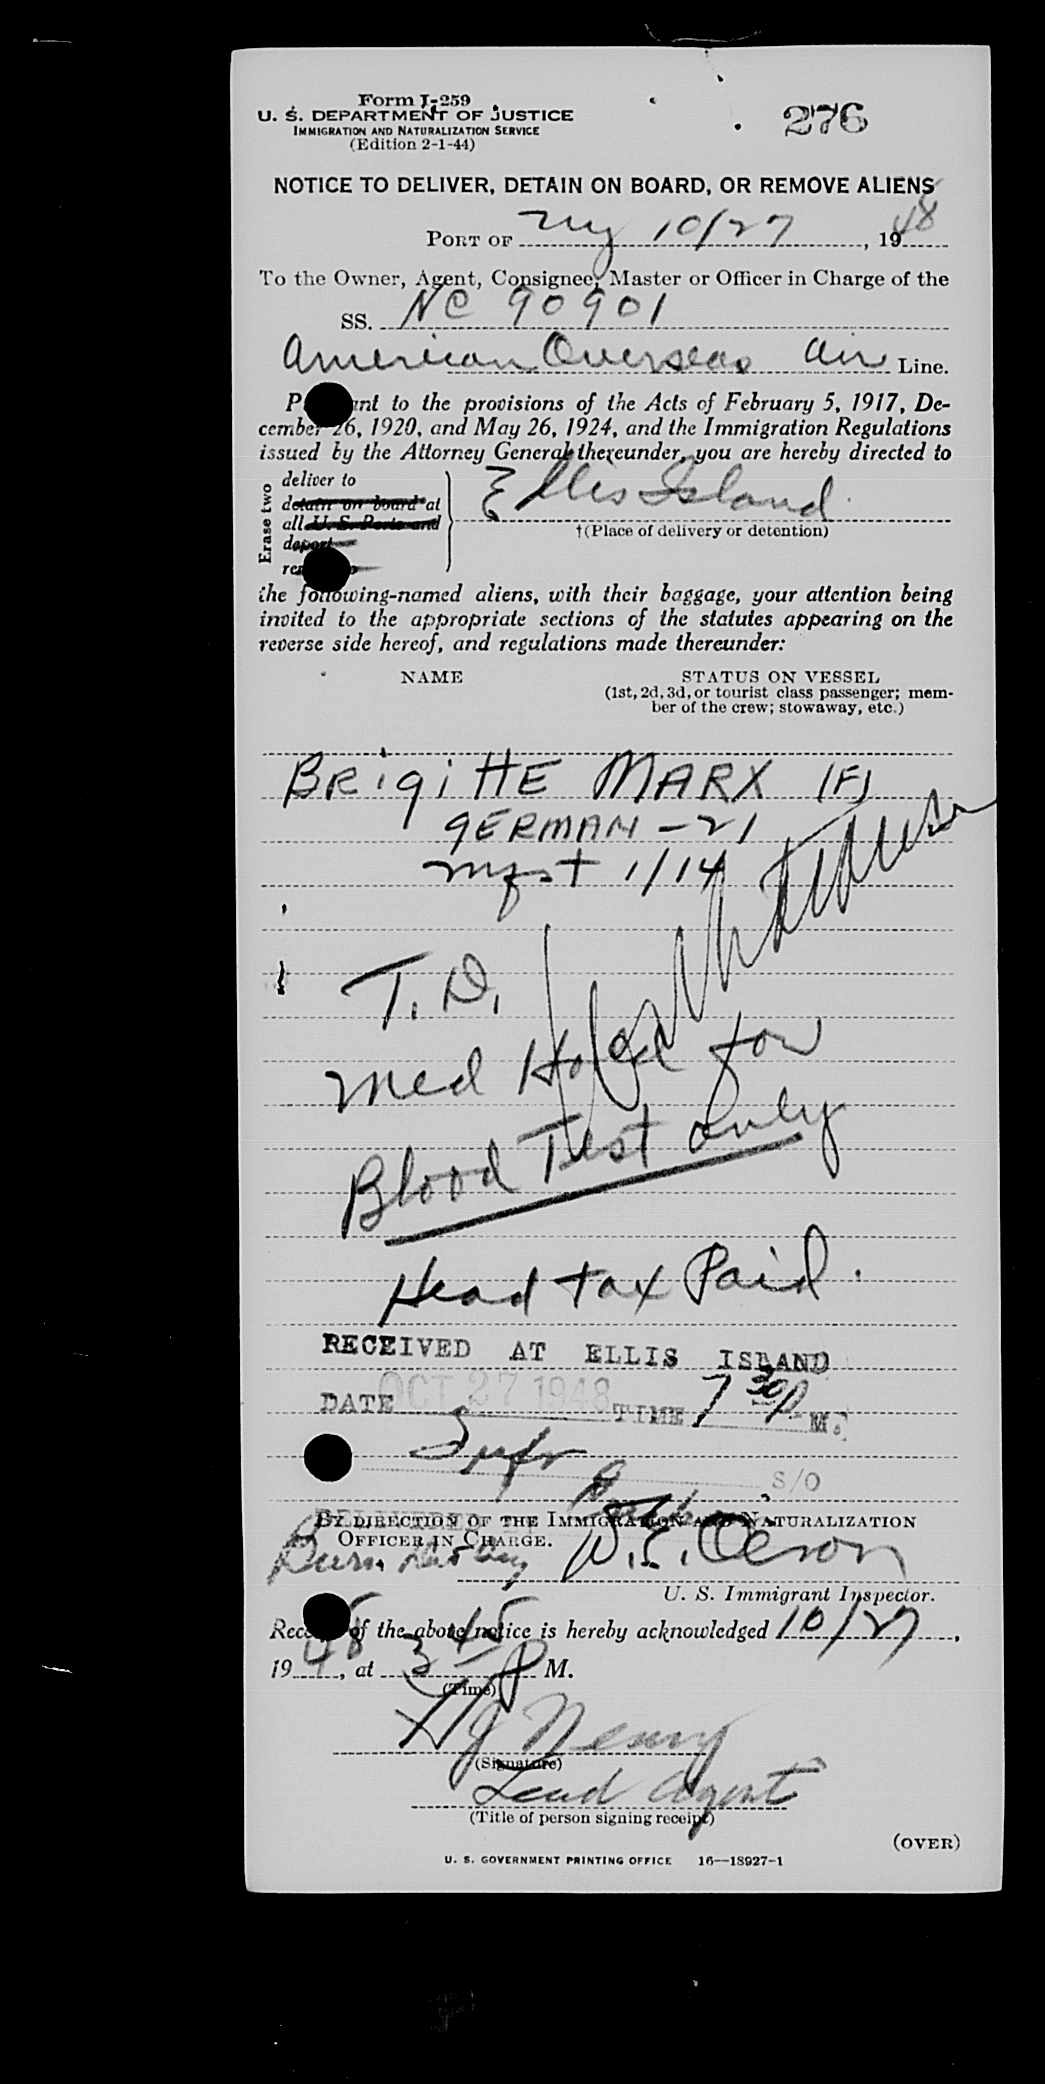 Form I-259
U. S. DEPARTMENT OF JUSTICE
IMMIGRATION AND NATURALIZATION SERVICE
(Edition 2-1-44)
276
NOTICE TO DELIVER, DETAIN ON BOARD, OR REMOVE ALIENS
PORT OF NY 10/27, 1948
To the Owner, Agent, Consignee, Master or Officer in Charge of the
SS. NC 90901
American Overseas Air Line.
to the provisions of the Acts of February 5, 1917, De-
cember 26, 1920, and May 26, 1924, and the Immigration Regulations
issued by the Attorney General thereunder, you are hereby directed to
Erase two
deliver to
detain on board at
all U. S. Ports and
deport
Ellis Island
†(Place of delivery or detention)
the following-named aliens, with their baggage, your attention being
invited to the appropriate sections of the statutes appearing on the
reverse side hereof, and regulations made thereunder:
NAME
STATUS ON VESSEL
(1st, 2d, 3d, or tourist class passenger; mem-
ber of the crew; stowaway, etc.)
BRIGITTE MARX (F)
GERMAN - 21
mfst 1/14
T. D.
Med Hold for
Blood Test only
Head tax Paid.
RECEIVED AT ELLIS ISLAND
DATE OCT 27 1948 TIME 7 30 P M.
S/O
BY DIRECTION OF THE IMMIGRATION AND NATURALIZATION
OFFICER IN CHARGE.
U. S. Immigrant Inspector.
of the above notice is hereby acknowledged 10/27,
1948, at 3 45 P M.
(Time)
(Signature)
Lead Agent
(Title of person signing receipt)
(OVER)
U. S. GOVERNMENT PRINTING OFFICE 16—18927-1